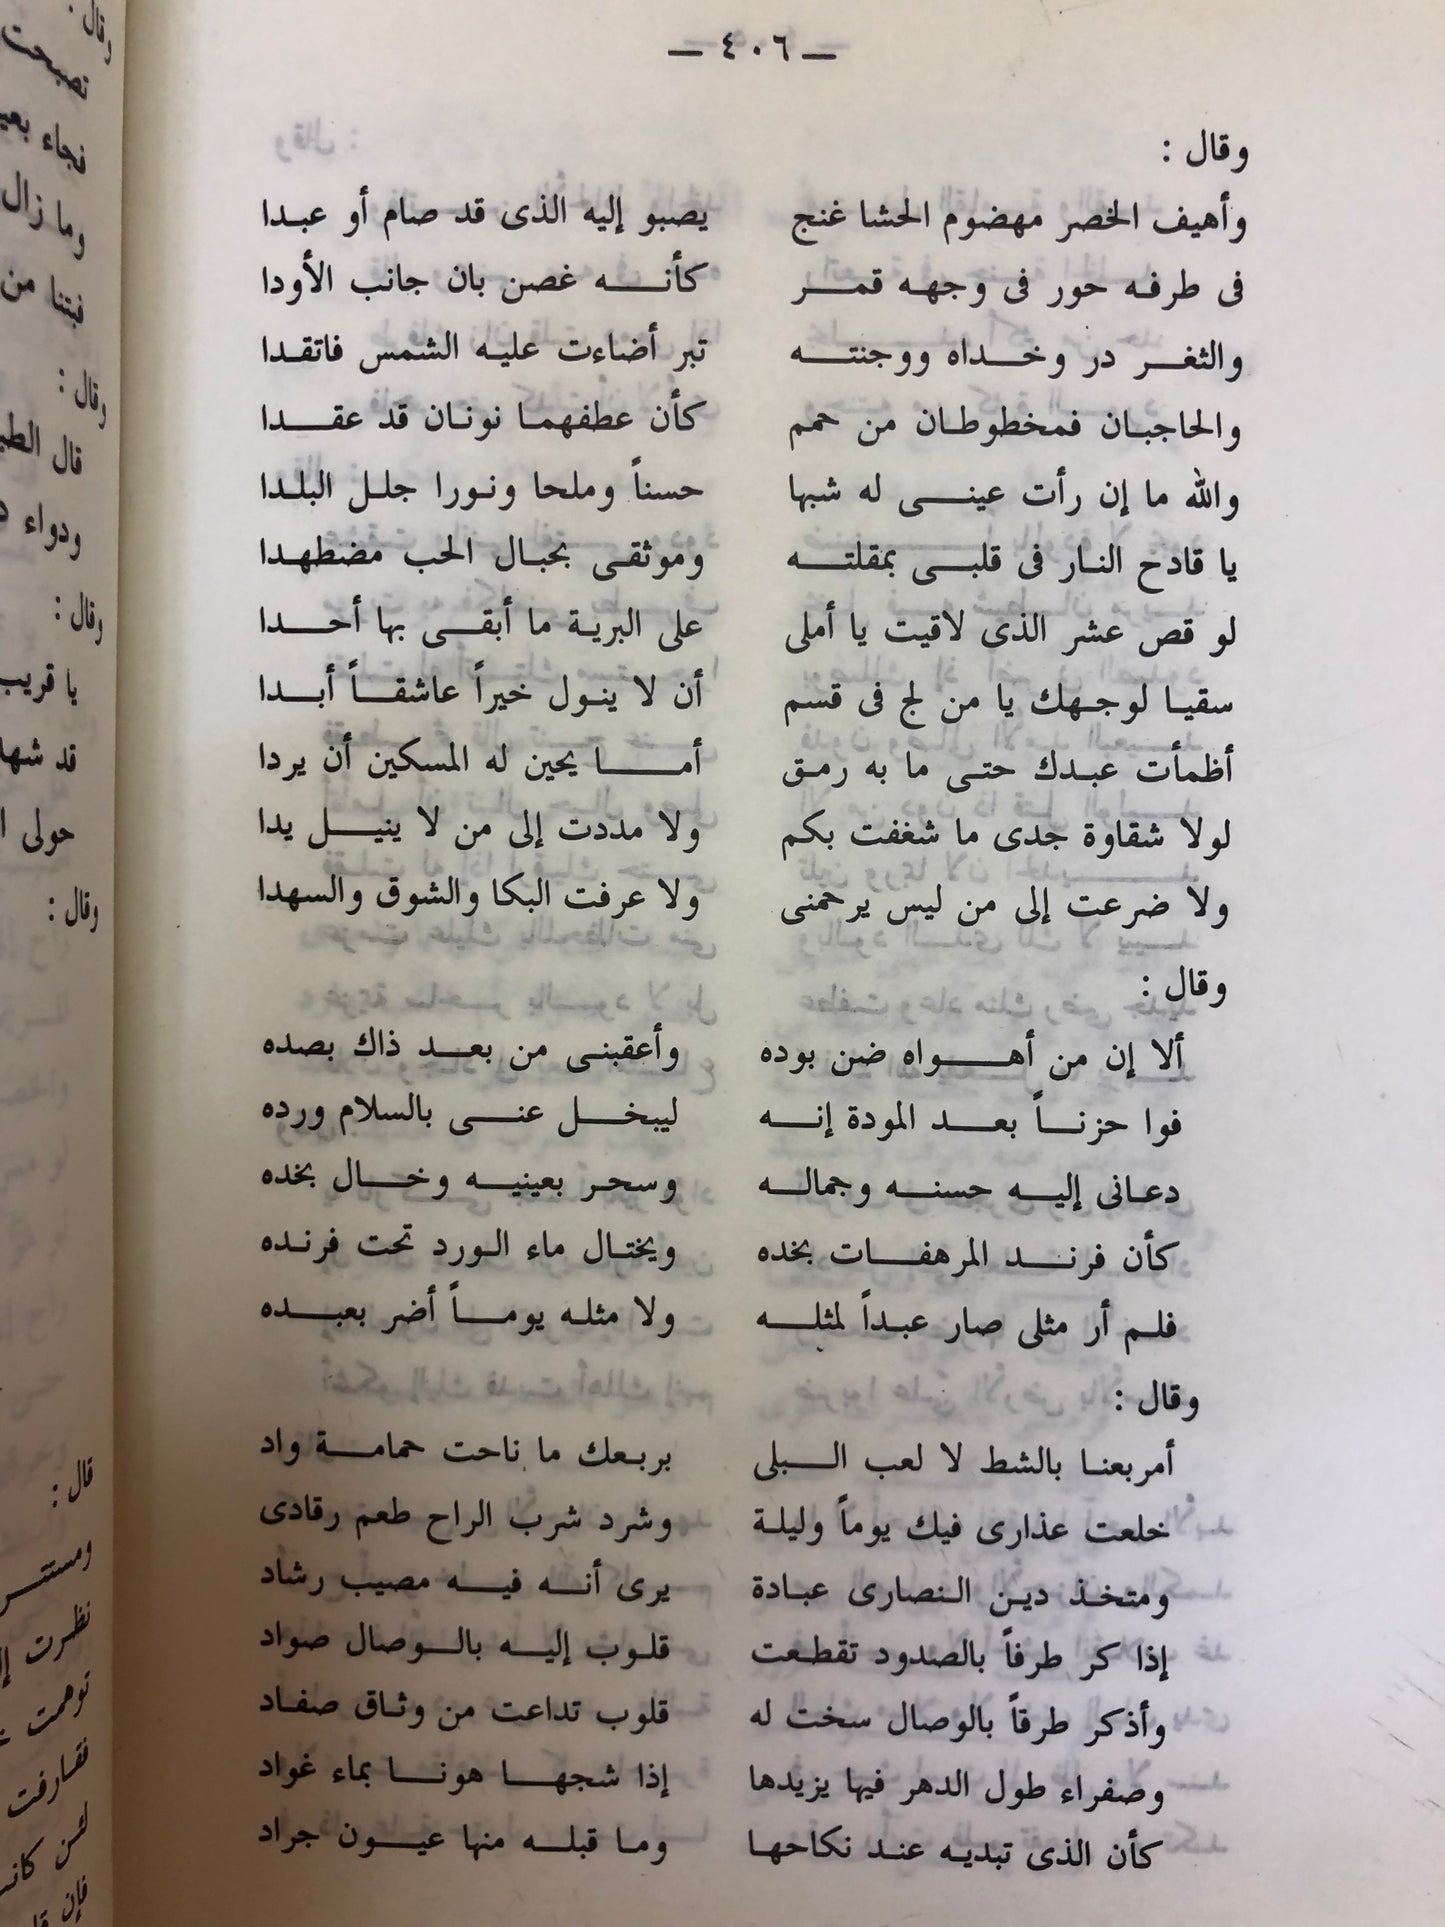 — ٤٠٦ —
وقال :
وأهيف الخصر مهضوم الحشا غنج يصبو إليه الذى قد صام أو عبدا
فى طرفه حور فى وجهه قمـــر كأنـــه غصن بان جانب الأودا
والثغـــر در وخـــداه ووجنتـــه تبر أضاءت عليه الشمس فاتقدا
والحاجبان فمخطوطان من حمم كأن عطفهما نونان قد عقـــدا
والله ما إن رأت عينـــى له شبها حسناً وملحا ونورا جلل البلدا
يا قادح النار فى قلبـــى بمقلتـــه وموثقى بحبال الحب مضطهدا
لو قص عشر الذى لاقيت يا أملى على البرية ما أبقـــى بها أحـــدا
سقيا لوجهك يا من لج فى قسم أن لا ينول خيراً عاشقـــاً أبدا
أظمأت عبدك حتى ما به رمق أمـــا يحين له المسكين أن يردا
لولا شقاوة جدى ما شغفت بكم ولا مددت إلى من لا ينيـــل يدا
ولا ضرعت إلى من ليس يرحمنى ولا عرفت البكا والشوق والسهدا
وقال :
ألا إن من أهـــواه ضن بوده وأعقبنى من بعـــد ذاك بصده
فوا حزنـــاً بعـــد المودة إنـــه ليبخـــل عنـــى بالسلام ورده
دعانى إليـــه حسنـــه وجمالـــه وسحر بعينيـــه وخـــال بخده
كأن فرنـــد المرهفـــات بخده ويختال ماء الورد تحت فرنده
فلم أر مثلى صار عبداً لمثلـــه ولا مثله يومـــاً أضر بعبـــده
وقال :
أمربعنا بالشط لا لعب البـــلى بربعك ما ناحت حمامـــة واد
خلعت عذارى فيك يوماً وليلة وشرد شرب الراح طعم رقادى
ومتخذ دين النصارى عبادة يرى أنـــه فيـــه مصيب رشاد
إذا كر طرفاً بالصدود تقطعت قلوب إليـــه بالوصال صواد
وأذكر طرقاً بالوصال سخت له قلوب تداعت من وثاق صفاد
وصفراء طول الدهر فيها يزيدها إذا شجهـــا هونـــا بماء غواد
كأن الذى تبديه عند نكاحها وما قبلـــه منها عيـــون جراد
وقال :
تصبحت
فجاء
وما زال
فبتنا من
وقال :
قال
ودواء
وقال :
يا قريب
قد شها
حولى
وقال :
قال :
ومستـــر
نظرت
توهمت
فقارفت
لعن
فإن